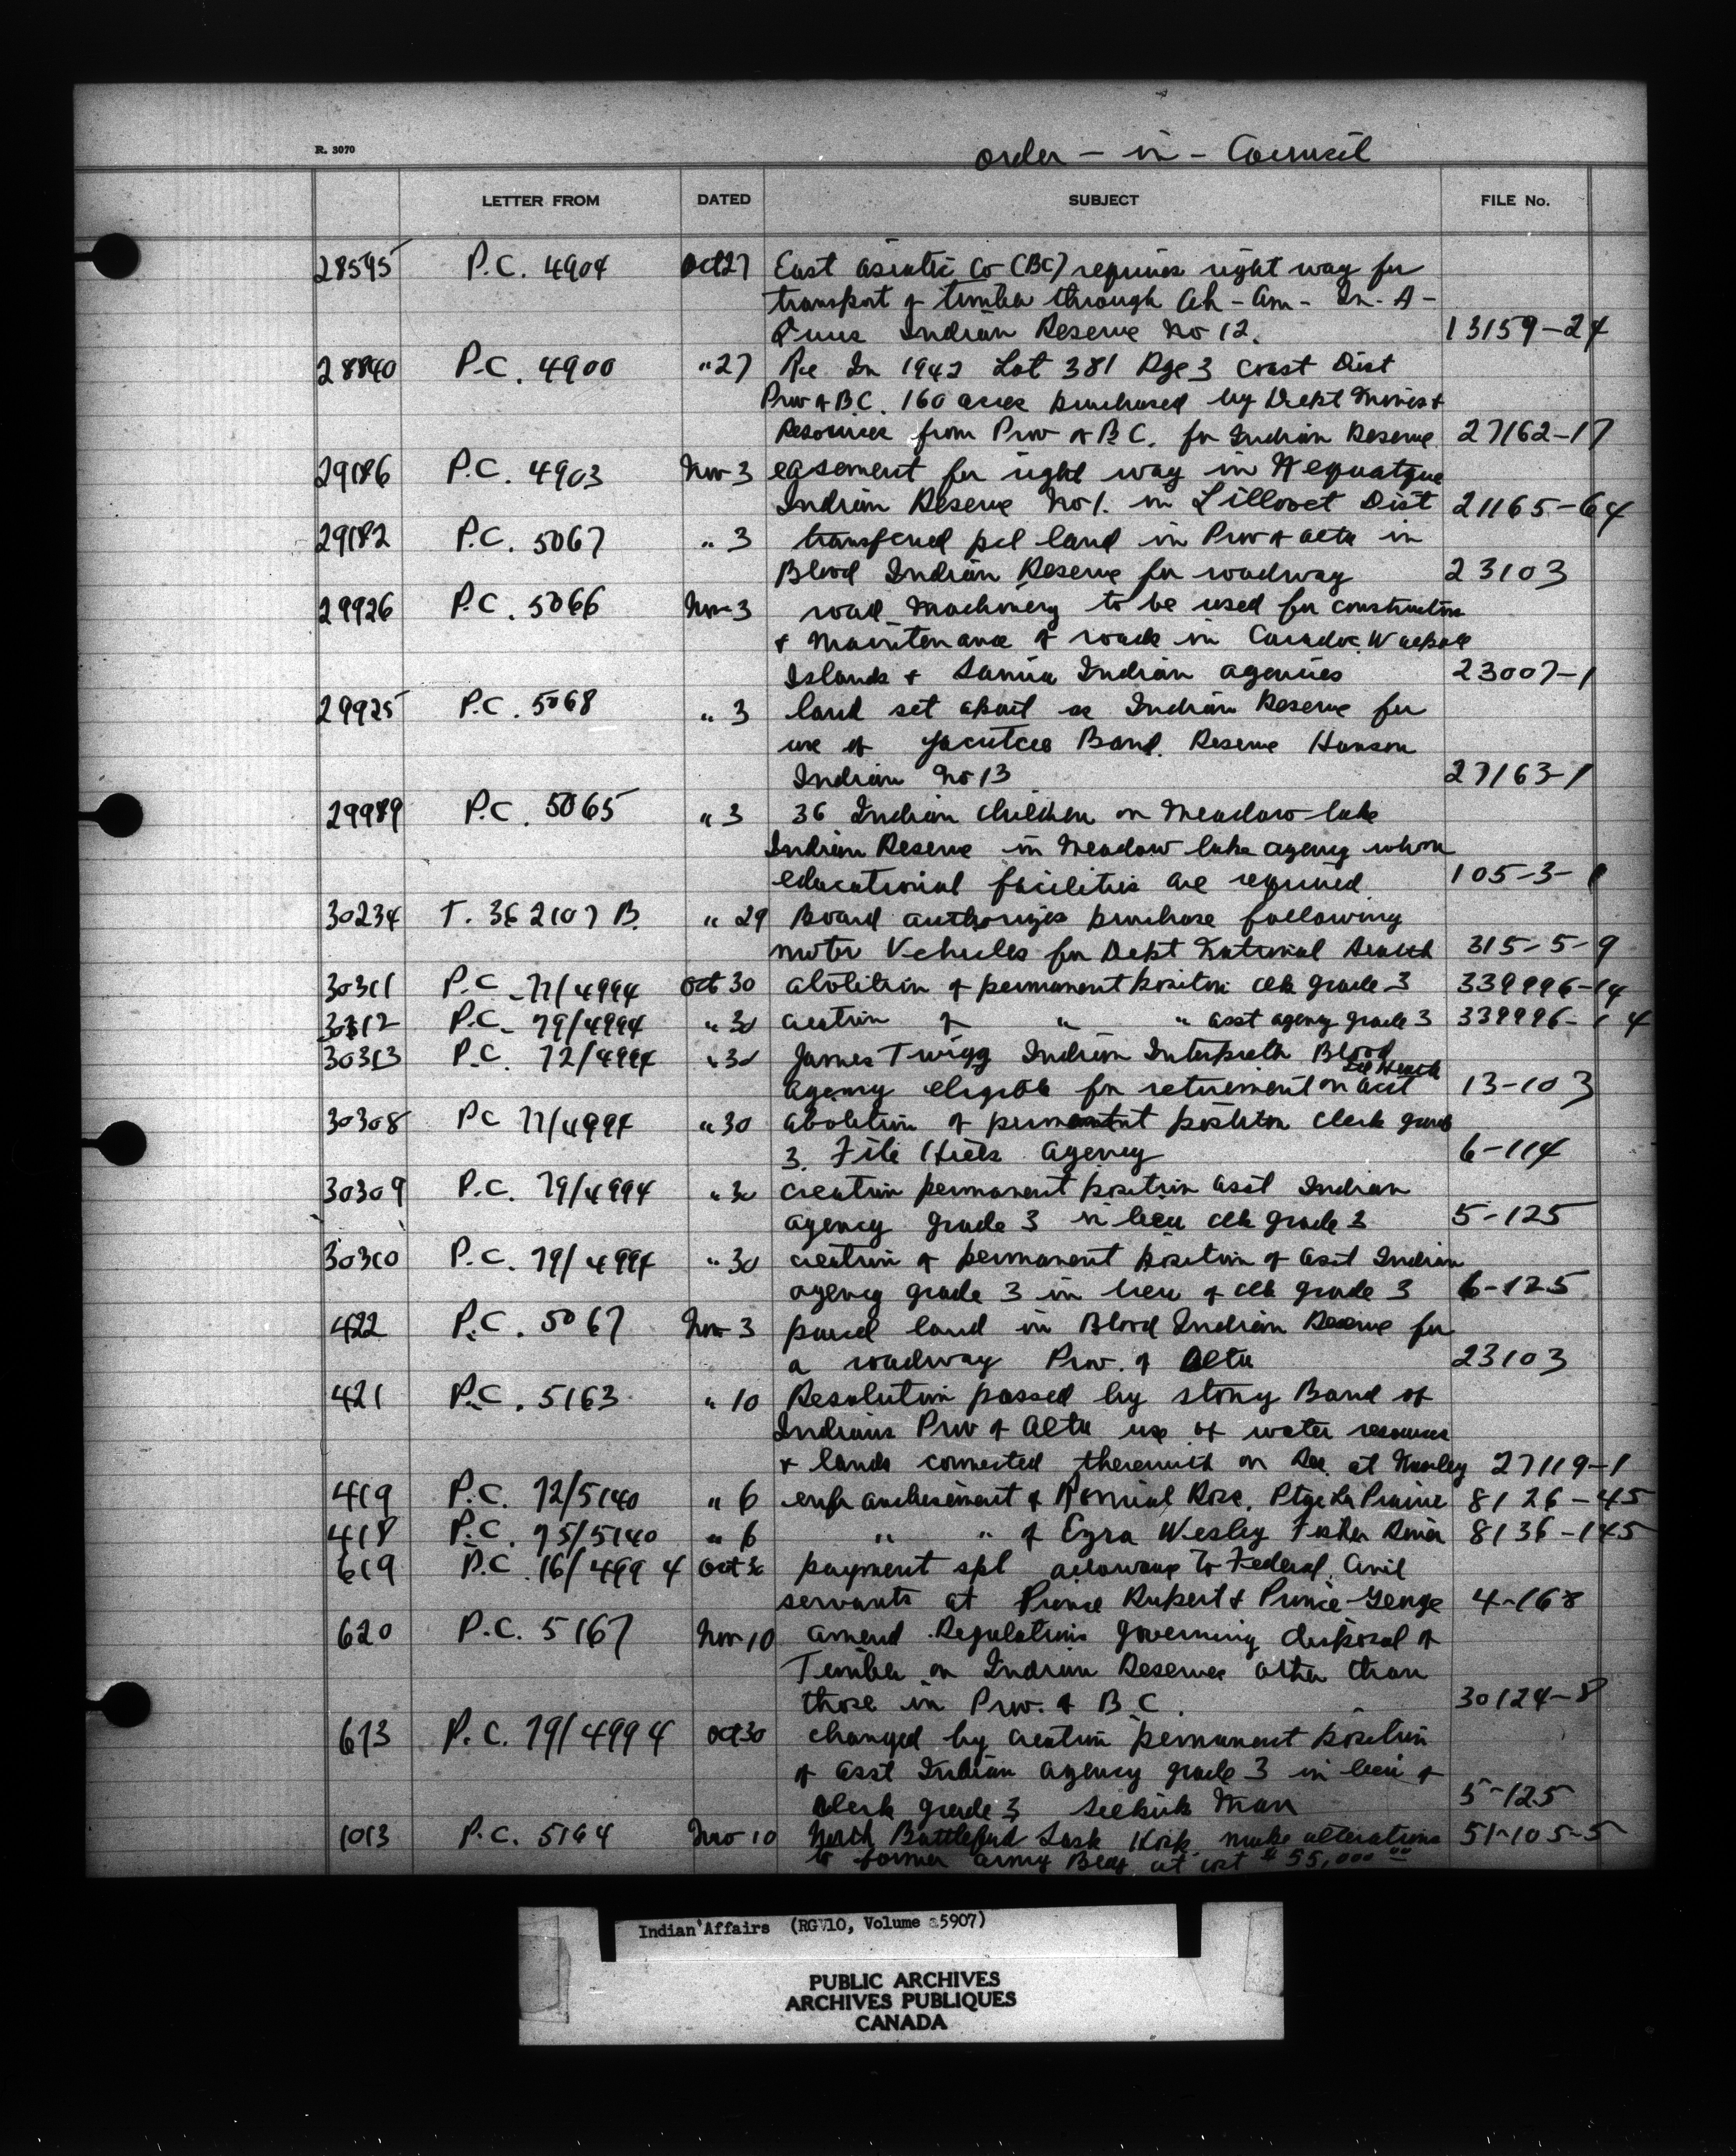 R. 3070
order - in - Council
LETTER FROM DATED SUBJECT FILE No.
28595 P.C. 4904 Oct 27 East Asiatic Co (BC) requires right way for
transport of timber through Ah - Am - In - A -
Indian Reserve No 12. 13159-24
28840 P.C. 4900 " 27 Re In 1942 Lot 381 Rge 3 Coast Dist
Prov of B.C. 160 acres purchased by Dept Mines &
Resources from Prov of B.C. for Indian Reserve 27162-17
29186 P.C. 4903 Nov 3 easement for right way in Nequatque
Indian Reserve No 1. in Lillooet Dist 21165-64
29182 P.C. 5067 " 3 transfered pcl land in Prov of Alta in
Blood Indian Reserve for roadway 23103
29926 P.C. 5066 Nov 3 road machinery to be used for construction
& maintenance of roads in Caradoc Walpole
Islands & Sarnia Indian agencies 23007-1
29925 P.C. 5068 " 3 land set apart as Indian Reserve for
use of Band. Reserve Hanson
Indian No 13 27163-1
29989 P.C. 5065 " 3 36 Indian children on Meadow lake
Indian Reserve in Meadow lake agency whom
educational facilities are required 105-3-1
30234 T. 362107 B. " 29 Board authorizes purchase following
motor Vehicles for Dept National Health 315-5-9
30311 P.C. 77/4994 Oct 30 abolition of permanent position clk grade 3 339996-14
30312 P.C. 79/4994 " 30 creation of " " asst agency grade 3 339996-14
30313 P.C. 72/4994 " 30 James Twigg Indian Interpreth Blood
agency eligible for retirement on acct Ill Health 13-103
30308 PC 77/4994 " 30 abolition of permanent position Clerk grade
3. File Hills Agency 6-114
30309 P.C. 79/4994 " 30 creation permanent position asst Indian
agency grade 3 in lieu clk grade 3 5-125
30310 P.C. 79/4994 " 30 creation of permanent position of asst Indian
agency grade 3 in lieu of clk grade 3 6-125
422 P.C. 5067 Nov 3 parcel land in Blood Indian Reserve for
a roadway Prov. of Alta 23103
421 P.C. 5163 " 10 Resolution passed by Stony Band of
Indians Prov of Alta use of water resources
& lands connected therewith on Res. at Morley 27119-1
419 P.C. 72/5140 " 6 enfranchisement of Rose, Ptge La Prairie 8126-45
418 P.C. 75/5140 " 6 " " of Ezra Wesley Fisher River 8136-145
619 P.C. 16/4994 Oct 30 payment spl allowance to Federal Civil
servants at Prince Rupert & Prince George 4-168
620 P.C. 5167 Nov 10 amend Regulations governing disposal of
Timber on Indian Reserves other than
those in Prov. of B.C. 30124-8
673 P.C. 79/4994 Oct 30 changed by creation permanent position
of asst Indian agency grade 3 in lieu of
clerk grade 3 Selkirk Man 5-125
1013 P.C. 5164 Nov 10 North Battleford Sask Hosp. make alterations 51-105-5
to former army Bldg at cost $55,000 00
Indian Affairs (RG 10, Volume 5907)
PUBLIC ARCHIVES
ARCHIVES PUBLIQUES
CANADA